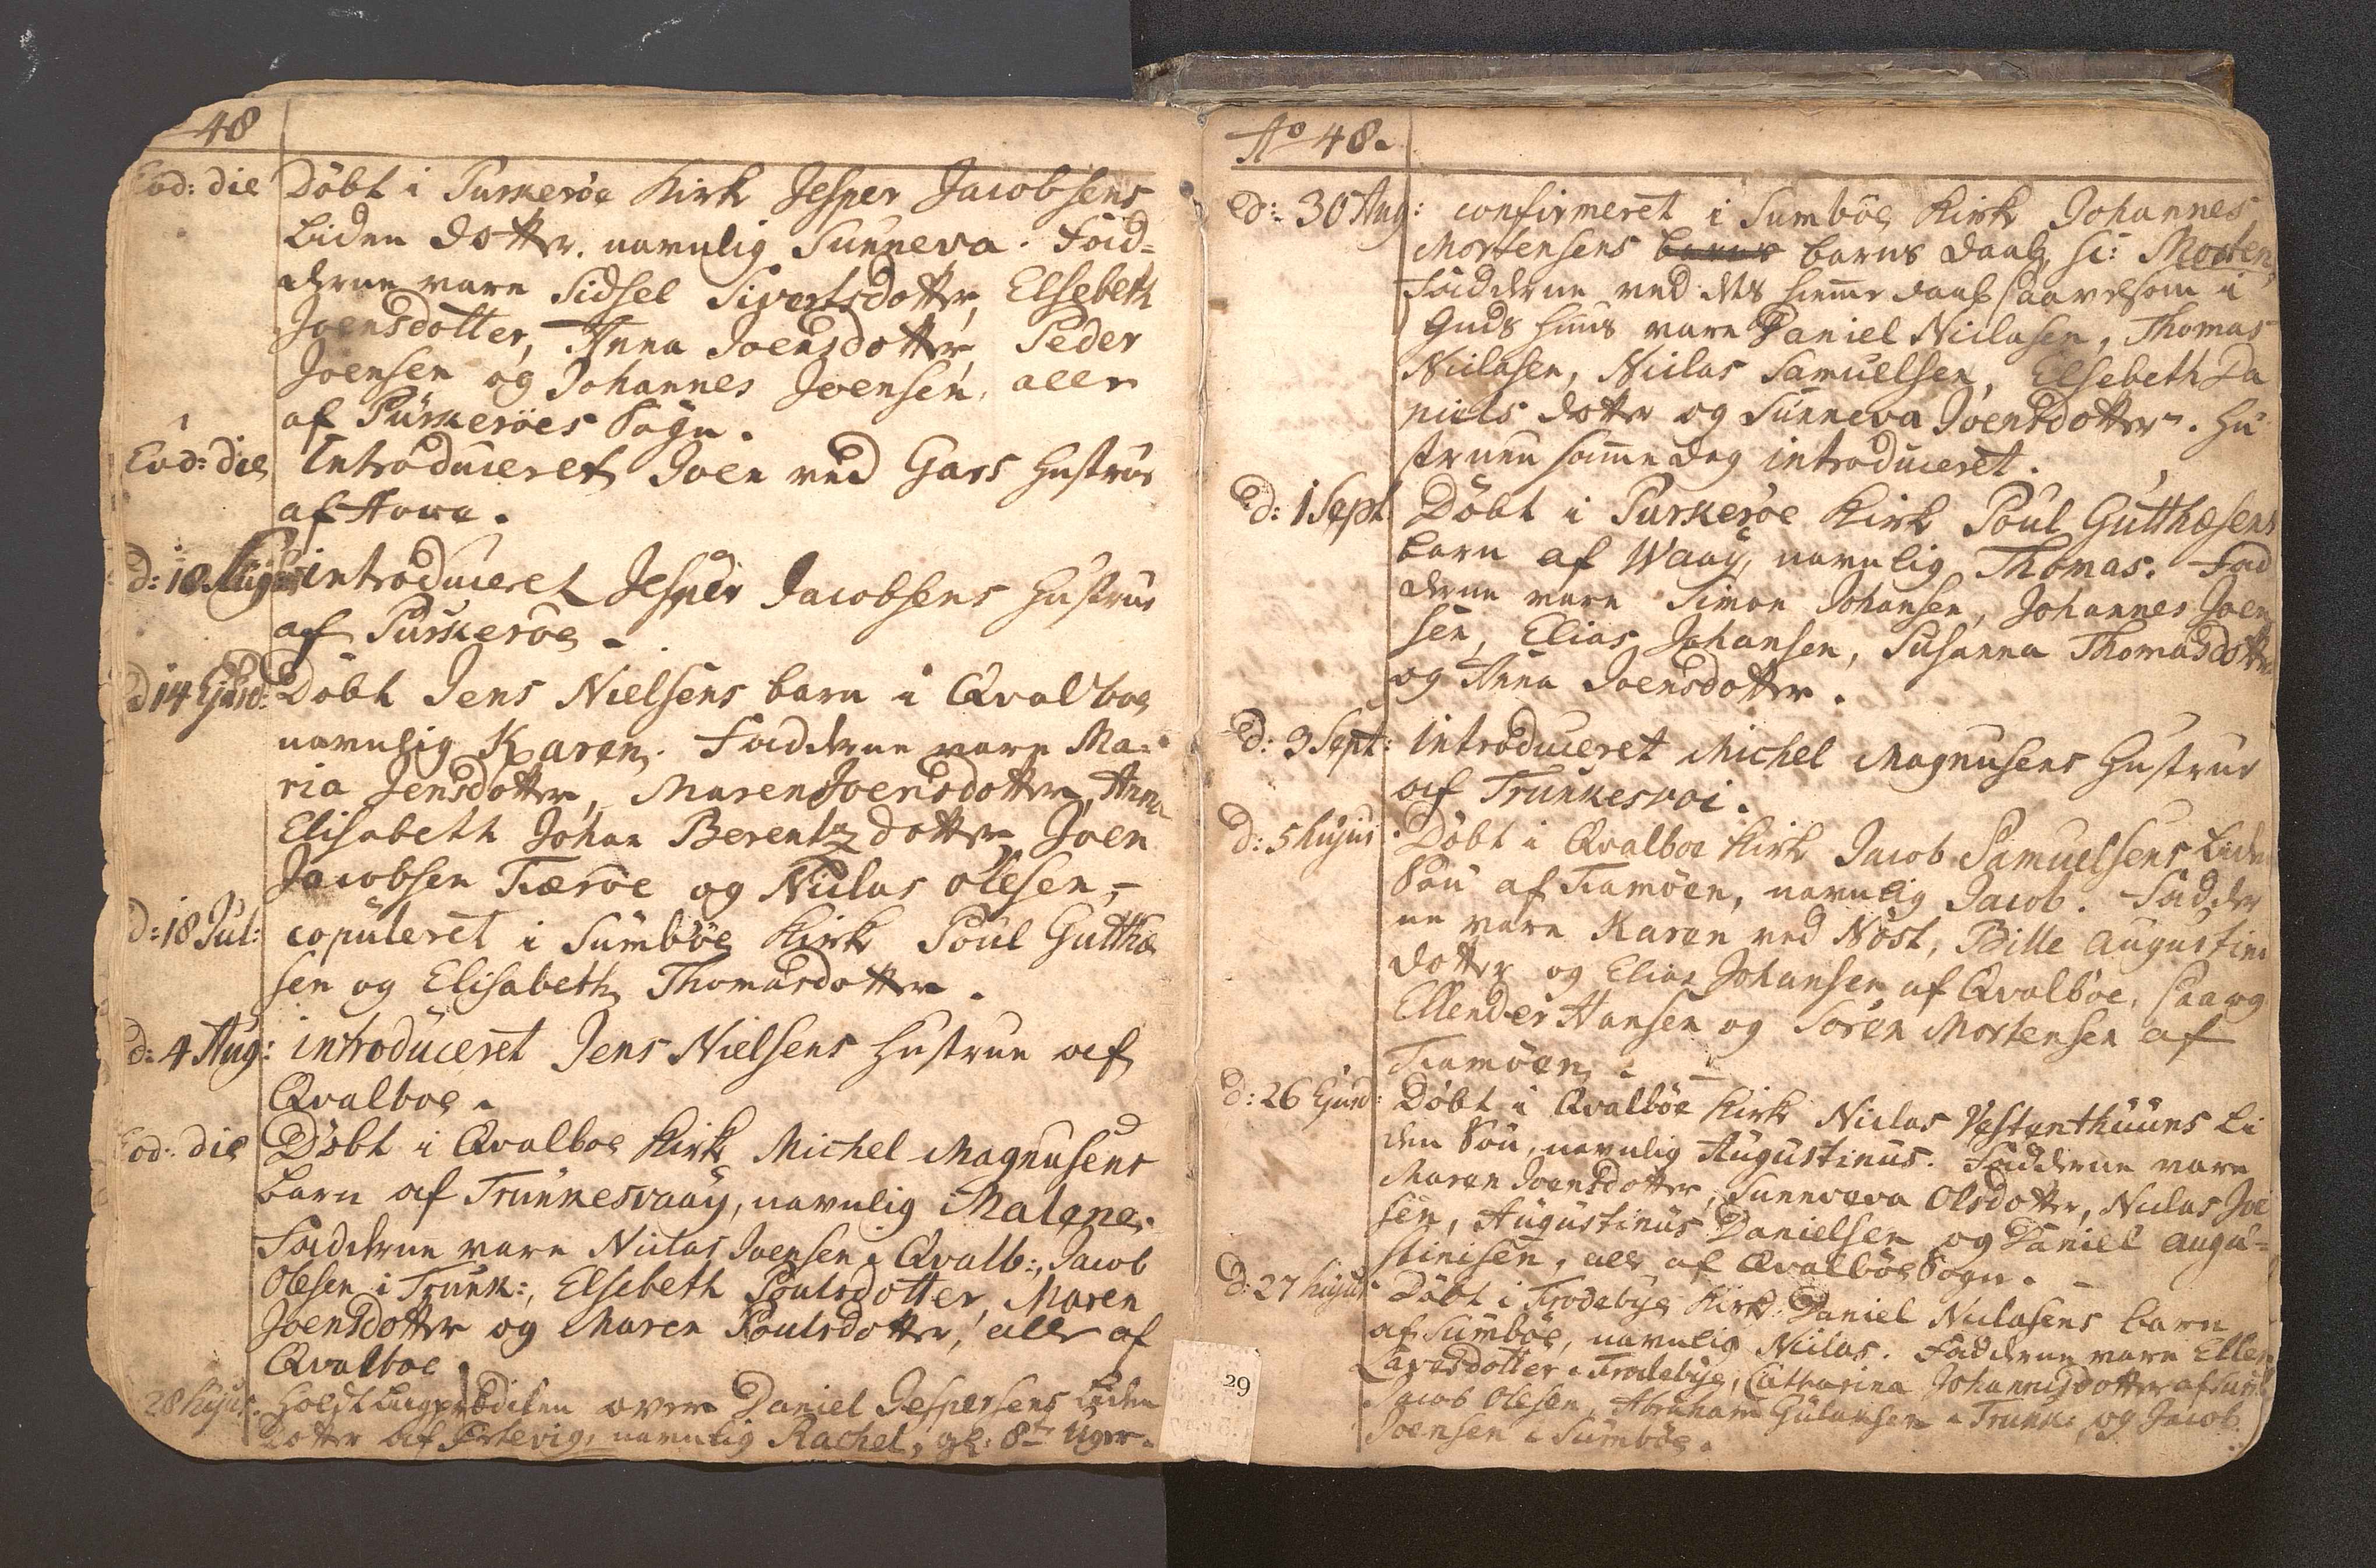 48
Eod: die Döbt i Purkeröe Kirk Jesper Jacobsens
liden dotter. navnlig Sunneva. Fad-
derne vare Sidsel Sivertsdotter, Elsebeth
Joensdotter, Anna Joensdotter, Peder
Joensen og Johannes Joensen, alle
af Purkeröes Sogn.
Eod: die Introduceret Joen ved Gars Hustrue
af Howe.
d: 10 introduceret Jesper Jacobsens Hustrue
af Purkeröe.
d 14 Ejusd: Döbt Jens Nielsens barn i Qvalboe
navnlig Karen. Fadderne vare Ma-
ria Jensdotter, Maren Joensdotter, Anna
Elisabeth Johan Berentz dotter, Joen
Jacobsen Færöe og Niclas Olesen,-
d: 18 Jul: copuleret i Sumböe Kirk Poul Gutthæ
sen og Elisabeth Thomasdotter.
d: 4 Aug: introduceret Jens Nielsens Hustrue af
Qvalboe.
Eod: die Döbt i Qvalboe Kirk Michel Magnusens
barn af Trunnesvaay, navnlig Malene.
Fadderne vare Niclas Joensen i Qvalb:, Jacob
Olesen i Trunn:, Elsebeth Poulsdotter, Maren
Joensdotter og Maren Poulsdotter, alle af
Qvalboe.
28 hujus: Holdt Liigprædiken over Daniel Jespersens liden
Dotter af Frtevig, navnlig Rachel, gl: 8te Uger.
Ao 48.
d: 30 Aug: confirmeret i Sumböe Kirk Johannes
Mortensens barns barns daab, sc: Morten,
Fadderne ved dets hiemme daab saavelsom i
Guds Huus vare Daniel Niclasen, Thomas
Niclasen, Niclas Samuelsen, Elsebeth Da
niels dotter og Sunneva Joensdotter. Hu
struen samme dag introduceret.
d: 1 Sept Döbt i Purkeröe Kirk Poul Gutthæsens
barn af Waay, navnlig Thomas. Fad
derne vare Simon Johansen, Johannes Joen
sen, Elias Johansen, Susanna Thomasdotter
og Anna Joensdotter.
d: 3 Sept: Introduceret Michel Magnusens Hustrue
af Trunnesvai.
d: 5 hujus Döbt i Qvalboe Kirk Jacob Samuelsens liden
Sön af Famöen, navnlig Jacob. Fadder
ne vare Karen ved Nöst, Bille Augustini
dotter og Elias Johansen af Qvalböe, saa og
Ellender Hansen og Sören Mortensen af
Famöen. -
d: 26 Ejusd: Döbt i Qvalböe Kirk Niclas Vestanthuuns li
den Sön, navnlig Augustinus. Fadderne vare
Maren Joensdotter, Sunneva Olsdotter, Niclas Joe
sen, Augustinus Danielsen og Daniel Augu-
stinisen, alle af Qvalböe Sogn. -
d: 27 hujus Döbt i Frodebye Kirk: Daniel Niclasens barn
af Sumböe, navnlig Niclas. Fadderne vare Ellen
Larsdotter i Frodebye, Catharina Johannisdotter af Sumb
Jacob Olesen, Abraham Gulaksen i Trunn:, og Jacob
Joensen i Sumböe.
29